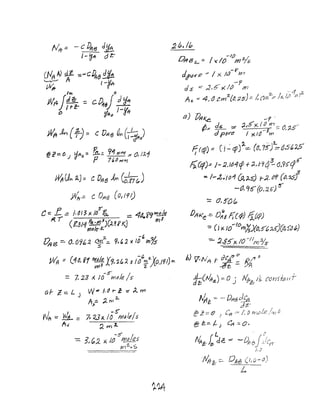 N_A = - c D_AB / (1-y_A) dy_A/dz
(N_A A) dz/A = -c D_AB dy_A/(1-y_A)
W_A ∫ dz/(1+z) = c D_AB ∫ dy_A/(1-y_A)
W_A ln(2/1) = c D_AB ln(1/(1-y_A0))
@ z=0, y_A0 = P_A/P = 94 mm/760 mm = 0.124
W_A(ln 2) = c D_AB ln(1/0.876)
W_A = c D_AB (0.191)
C = P/RT = 1.013 x 10^5 Pa / (8.314 Pa·m³/mole·K)(298K) = 40.89 mole/m³
D_AB = 0.0962 cm²/s = 9.62 x 10^-6 m²/s
W_A = (40.89 mole/m³)(9.262 x 10^-6 m²/s)(0.191) =
= 7.23 x 10^-5 mole/s
at z = L, W = 1.0 + z = 2 m
A_2 = 2 m²
N_A = W_A/A_2 = 7.23 x 10^-5 mole/s / 2 m²
= 3.62 x 10^-5 moles/m²-s
26.16
D_AB_L = 1 x 10^-10 m²/s
d pore = 1 x 10^-8 m
d s = 2.5 x 10^-9 m
a) D_AKe
φ = ds/dpore = 2.5 x 10^-9 m / 1 x 10^-8 m = 0.25
F_1(φ) = (1-φ)² = (0.75)² = 0.5625
F_2(φ) = 1 - 2.104φ + 2.09φ³ - 0.95φ^5
= 1 - 2.104 (0.25) + 2.09 (0.25)³
- 0.95 (0.25)^5
= 0.506
D_AKe = D_AB F_1(φ) F_2(φ)
= (1 x 10^-10 m²/s)(0.5625)(0.506)
= 2.85 x 10^-11 m²/s
d/dz (N_Az) = 0; N_Az is constant
N_Az = - D_AB dc_A/dz
@ z = 0, C_A = 1.0 mole/m³
@ z = L, C_A = 0.
N_Az ∫ dz = - D_AB ∫ dc_A
N_Az = D_AB (1.0-0) / L
224